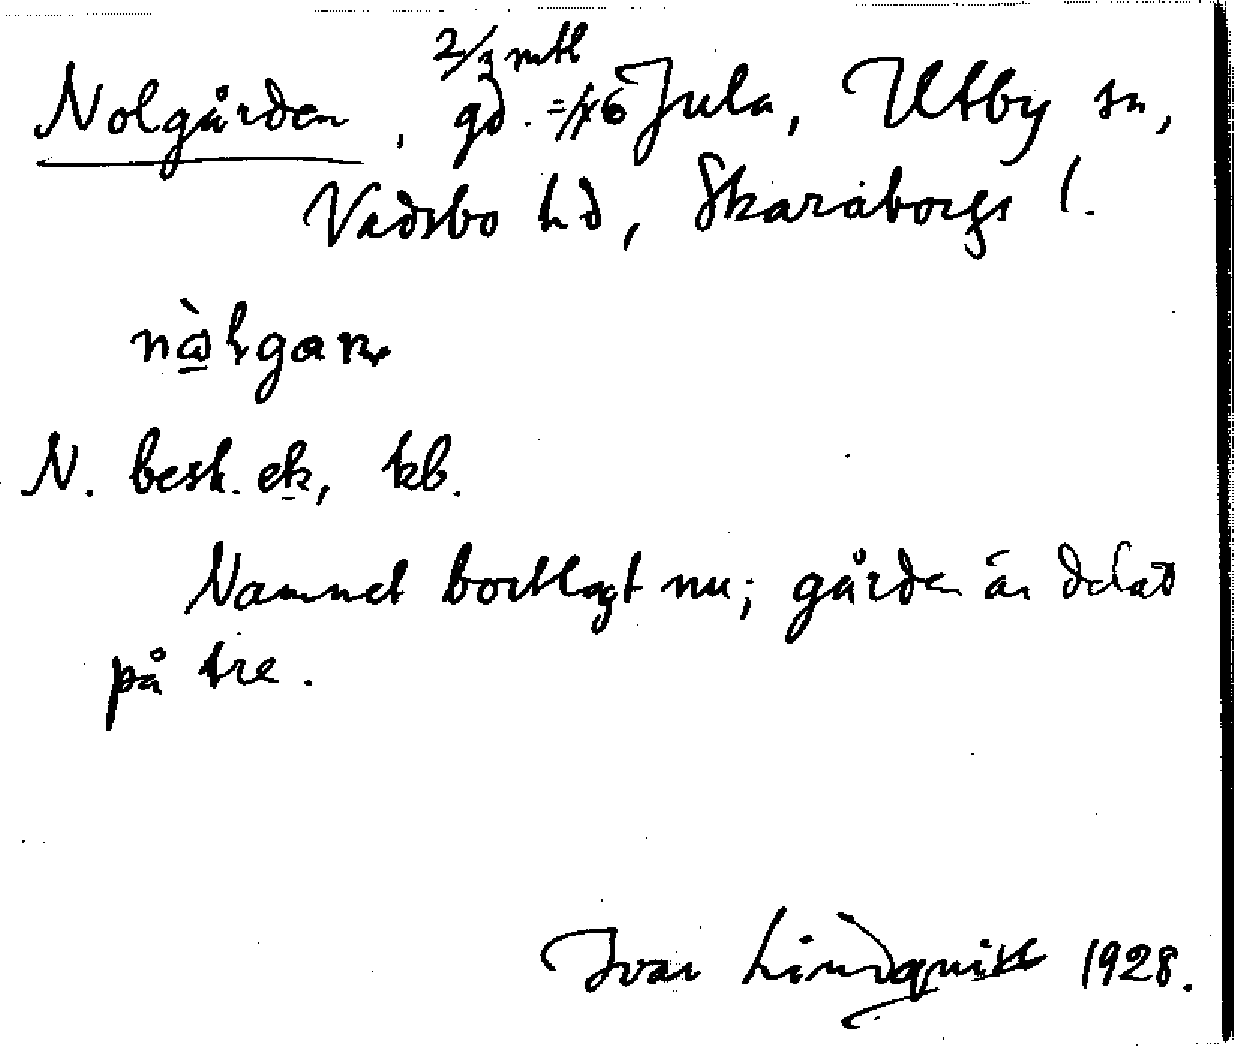 2/3 mtl
Nolgården, gd. #6 Jula, Utby sn,
Vadsbo hd, Skaraborgs l.
N. besk. ek, kb.
Namnet bortlagt nu; gården är delad
på tre.
Ivar Lindquist 1928.